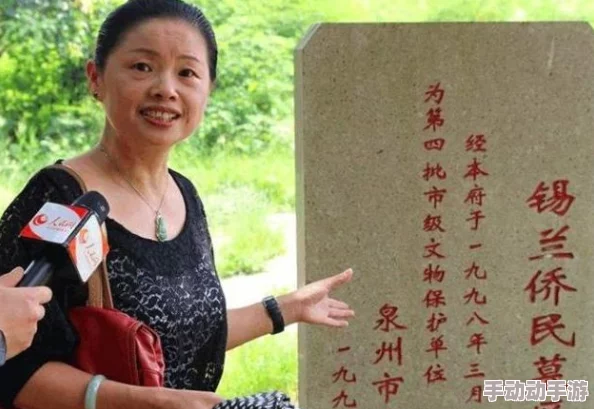 锡兰侨民墓
经本府于一九九八年三月
为第四批市级文物保护单位
泉州市
一九九
人民网
手动动手游